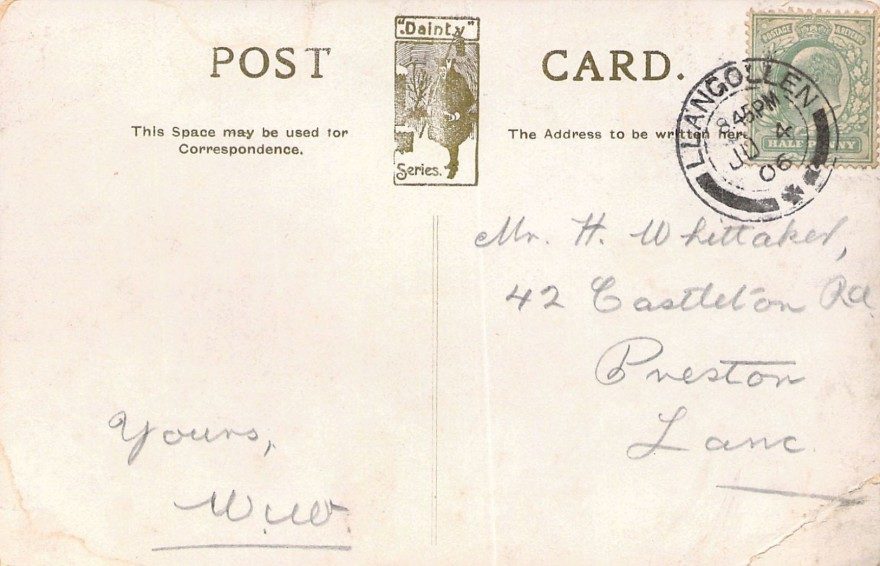 POST
"Dainty"
Series.
CARD.
This Space may be used for
Correspondence.
The Address to be written here.
LLANGOLLEN
8.45PM
JU 4
06
POSTAGE
HALF PENNY
Mr. H. Whittaker,
42 Castleton Rd
Preston
Lanc.
Yours,